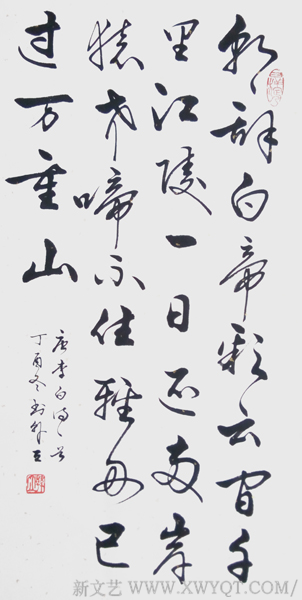 朝辞白帝彩云间千
里江陵一日还两岸
猿声啼不住轻舟已
过万重山
唐李白诗一首
丁酉冬
新文艺 WWW.XWYQT.COM